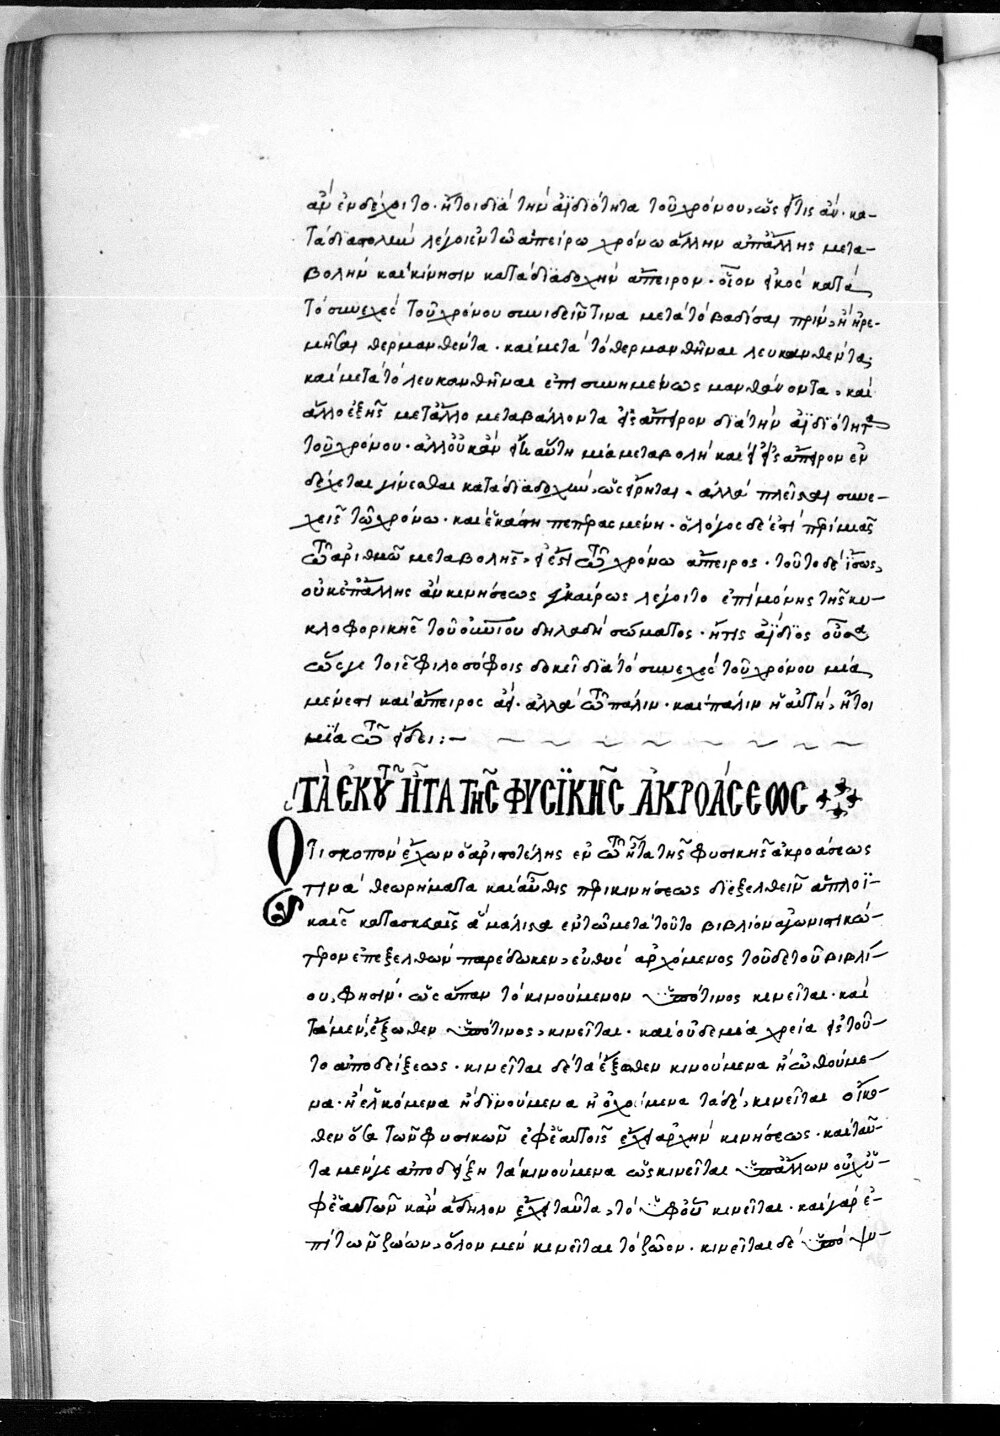 ἂν ἐνδέχοιτο· ἤτοι διὰ τὴν ἀϊδιότητα τοῦ χρόνου, ὡς εἴ τις ἂν κα-
τὰ διαπολὴν λέγοι ἐν τῷ ἀπείρῳ χρόνῳ ἄλλην ἀπ' ἄλλης μετα-
βολὴν καὶ κίνησιν κατὰ διαδοχὴν ἄπειρον· οἷον εἰκὸς κατὰ
τὸ συνεχὲς τοῦ χρόνου συνιδεῖν τινα μετὰ τὸ βαδίσαι πρὶν, ἢ ἠρε-
μῆσαι θερμανθέντα· καὶ μετὰ τὸ θερμανθῆναι λευκανθέντα,
καὶ μετὰ τὸ λευκανθῆναι ἐπισυνημένως μανθάνοντα, καὶ
ἄλλο ἑξῆς μετ' ἄλλο μεταβάλλοντα εἰς ἄπειρον διὰ τὴν ἀϊδιότητα
τοῦ χρόνου· ἀλλ' οὐκ ἂν εἴη αὕτη μία μεταβολὴ καὶ εἰ εἰς ἄπειρον ἐν
δέχεται γίνεσθαι κατὰ διαδοχὴν, ὡς εἴρηται· ἀλλὰ πλεῖσται συνε-
χεῖς τῷ χρόνῳ· καὶ ἑκάστη πεπερασμένη· ὁ λόγος δὲ ἐστὶ περὶ μιᾶς
τῷ ἀριθμῷ μεταβολῆς, εἰ ἔστι τῷ χρόνῳ ἄπειρος· τοῦτο δὲ ἴσως,
οὐκ ἐπ' ἄλλης ἂν κινήσεως εὐκαίρως λέγοιτο ἐπὶ μόνης τῆς κυ-
κλοφορικῆς τοῦ οὐνίου δηλαδὴ σώματος· ἥτις ἀΐδιος οὖσα
ὥς γε τοῖς φιλοσόφοις δοκεῖ διὰ τὸ συνεχὲς τοῦ χρόνου μία
μέν ἐστι καὶ ἄπειρος ἀεὶ· ἀλλὰ τῷ πάλιν· καὶ πάλιν ἡ αὐτὴ, ἤτοι
μία τῷ εἴδει:—
ΤΑ ΕΚ ΤΟΥ ΗΤΑ ΤΗΣ ΦΥΣΙΚΗΣ ΑΚΡΟΑΣΕΩΣ
Ὅτι σκοπὸν ἔχων ὁ ἀριστοτέλης ἐν τῷ ἦτα τῆς φυσικῆς ἀκροάσεως
τινὰ θεωρήματα καὶ αὖθις περὶ κινήσεως διεξελθεῖν ἁπλοϊ-
καῖς κατασκευαῖς ἃ μάλιστα ἐν τῷ μετὰ τοῦτο βιβλίον ἀγωνιστικώ-
τερον ἐπεξελθὼν παρέδωκεν, εὐθὺς ἀρχόμενος τοῦδε τοῦ βιβλί-
ου, φησὶν· ὡς ἅπαν τὸ κινούμενον ὑπό τινος κινεῖται· καὶ
τὰ μὲν, ἔξωθεν ὑπό τινος, κινεῖται· καὶ οὐδεμία χρεία εἰς τοῦ-
το ἀποδείξεως· κινεῖται δὲ τὰ ἔξωθεν κινούμενα ἢ ὠθούμε-
να· ἢ ἑλκόμενα ἢ δινούμενα ἢ ὀχούμενα τὰ δὲ, κινεῖται οἴκο-
θεν ὅσα τῶν φυσικῶν ἐφ' ἑαυτοῖς ἔχει ἀρχὴν κινήσεως· καὶ ταῦ-
τα μέν γε ἀποδείξη τὰ κινούμενα ὡς κινεῖται ὑπ' ἄλλων οὐχ ὑ-
φ' ἑαυτῶν κἂν ἄδηλον ἔχει ταῦτα, τὸ ὑφ' οὗ κινεῖται· καὶ γὰρ ἐ-
πὶ τῶν ζώων, ὅλον μὲν κινεῖται τὸ ζῶον· κινεῖται δὲ ὑπὸ ψυ-